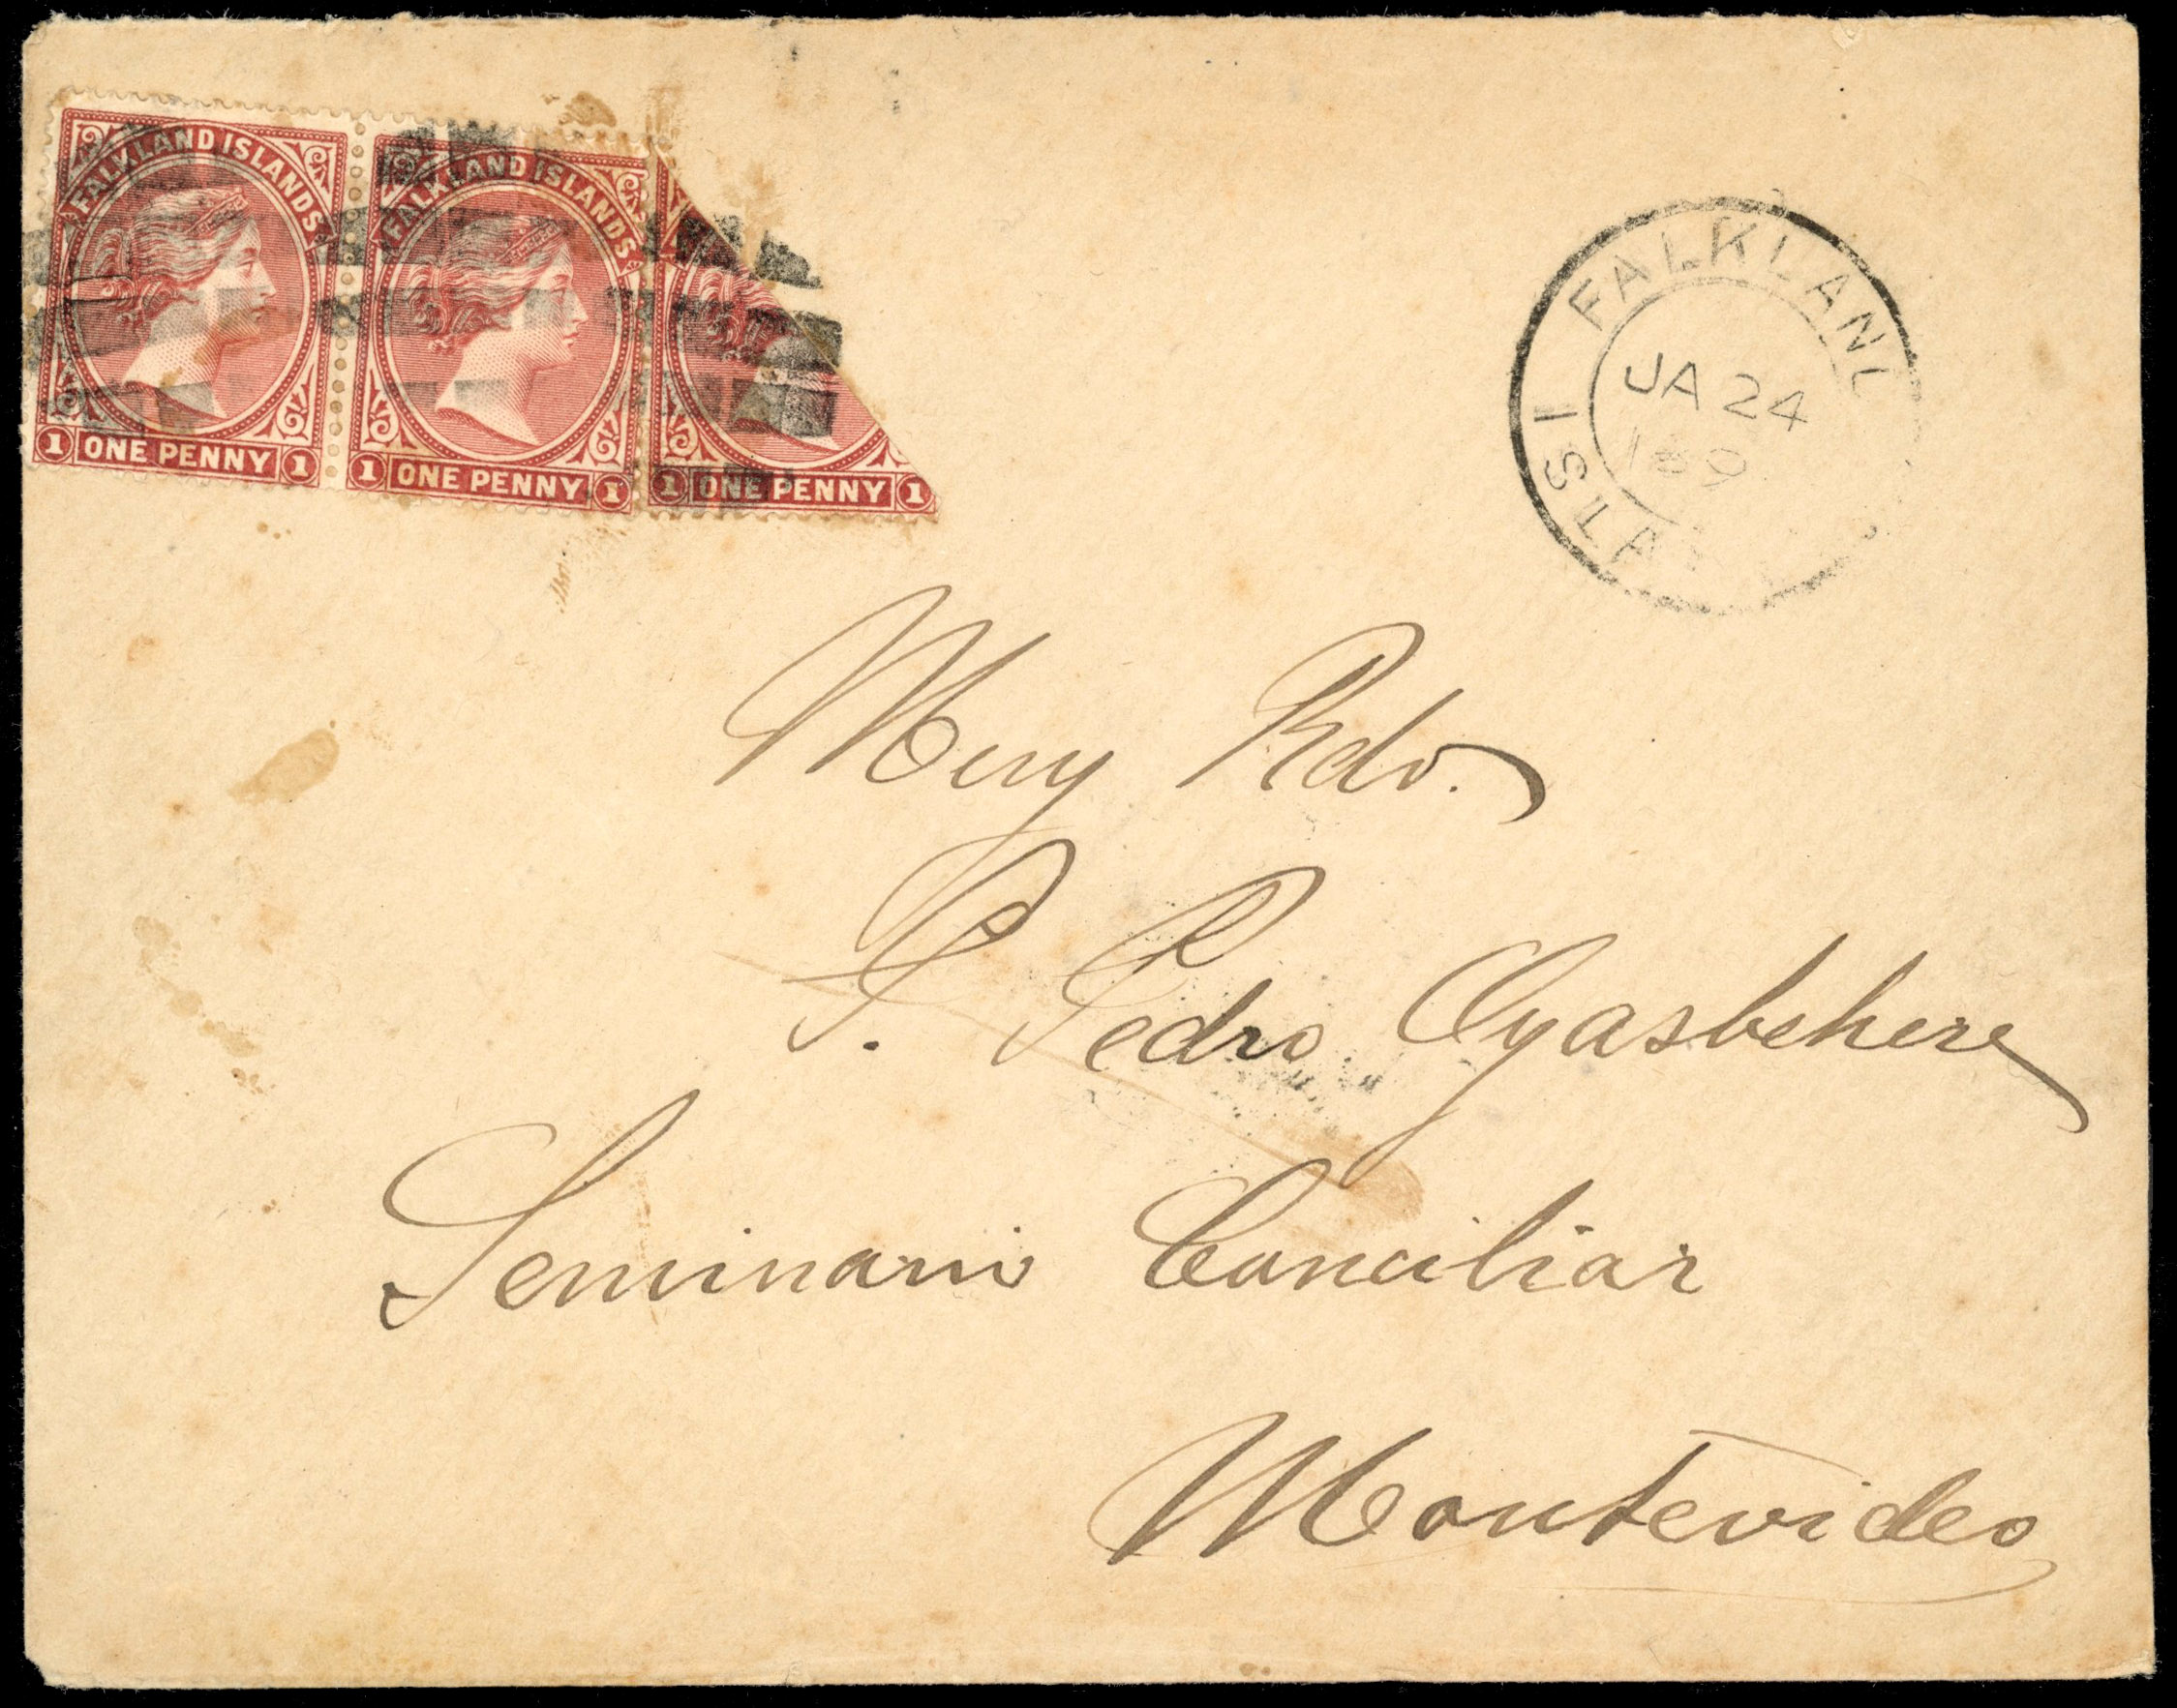 FALKLAND ISLANDS
1 ONE PENNY 1
FALKLAND ISLANDS
1 ONE PENNY 1
1 ONE PENNY 1
FALKLAND
JA 24
189
ISLA
Muy Rdo.
P. Pedro Oyasbehere
Seminario Conciliar
Montevideo